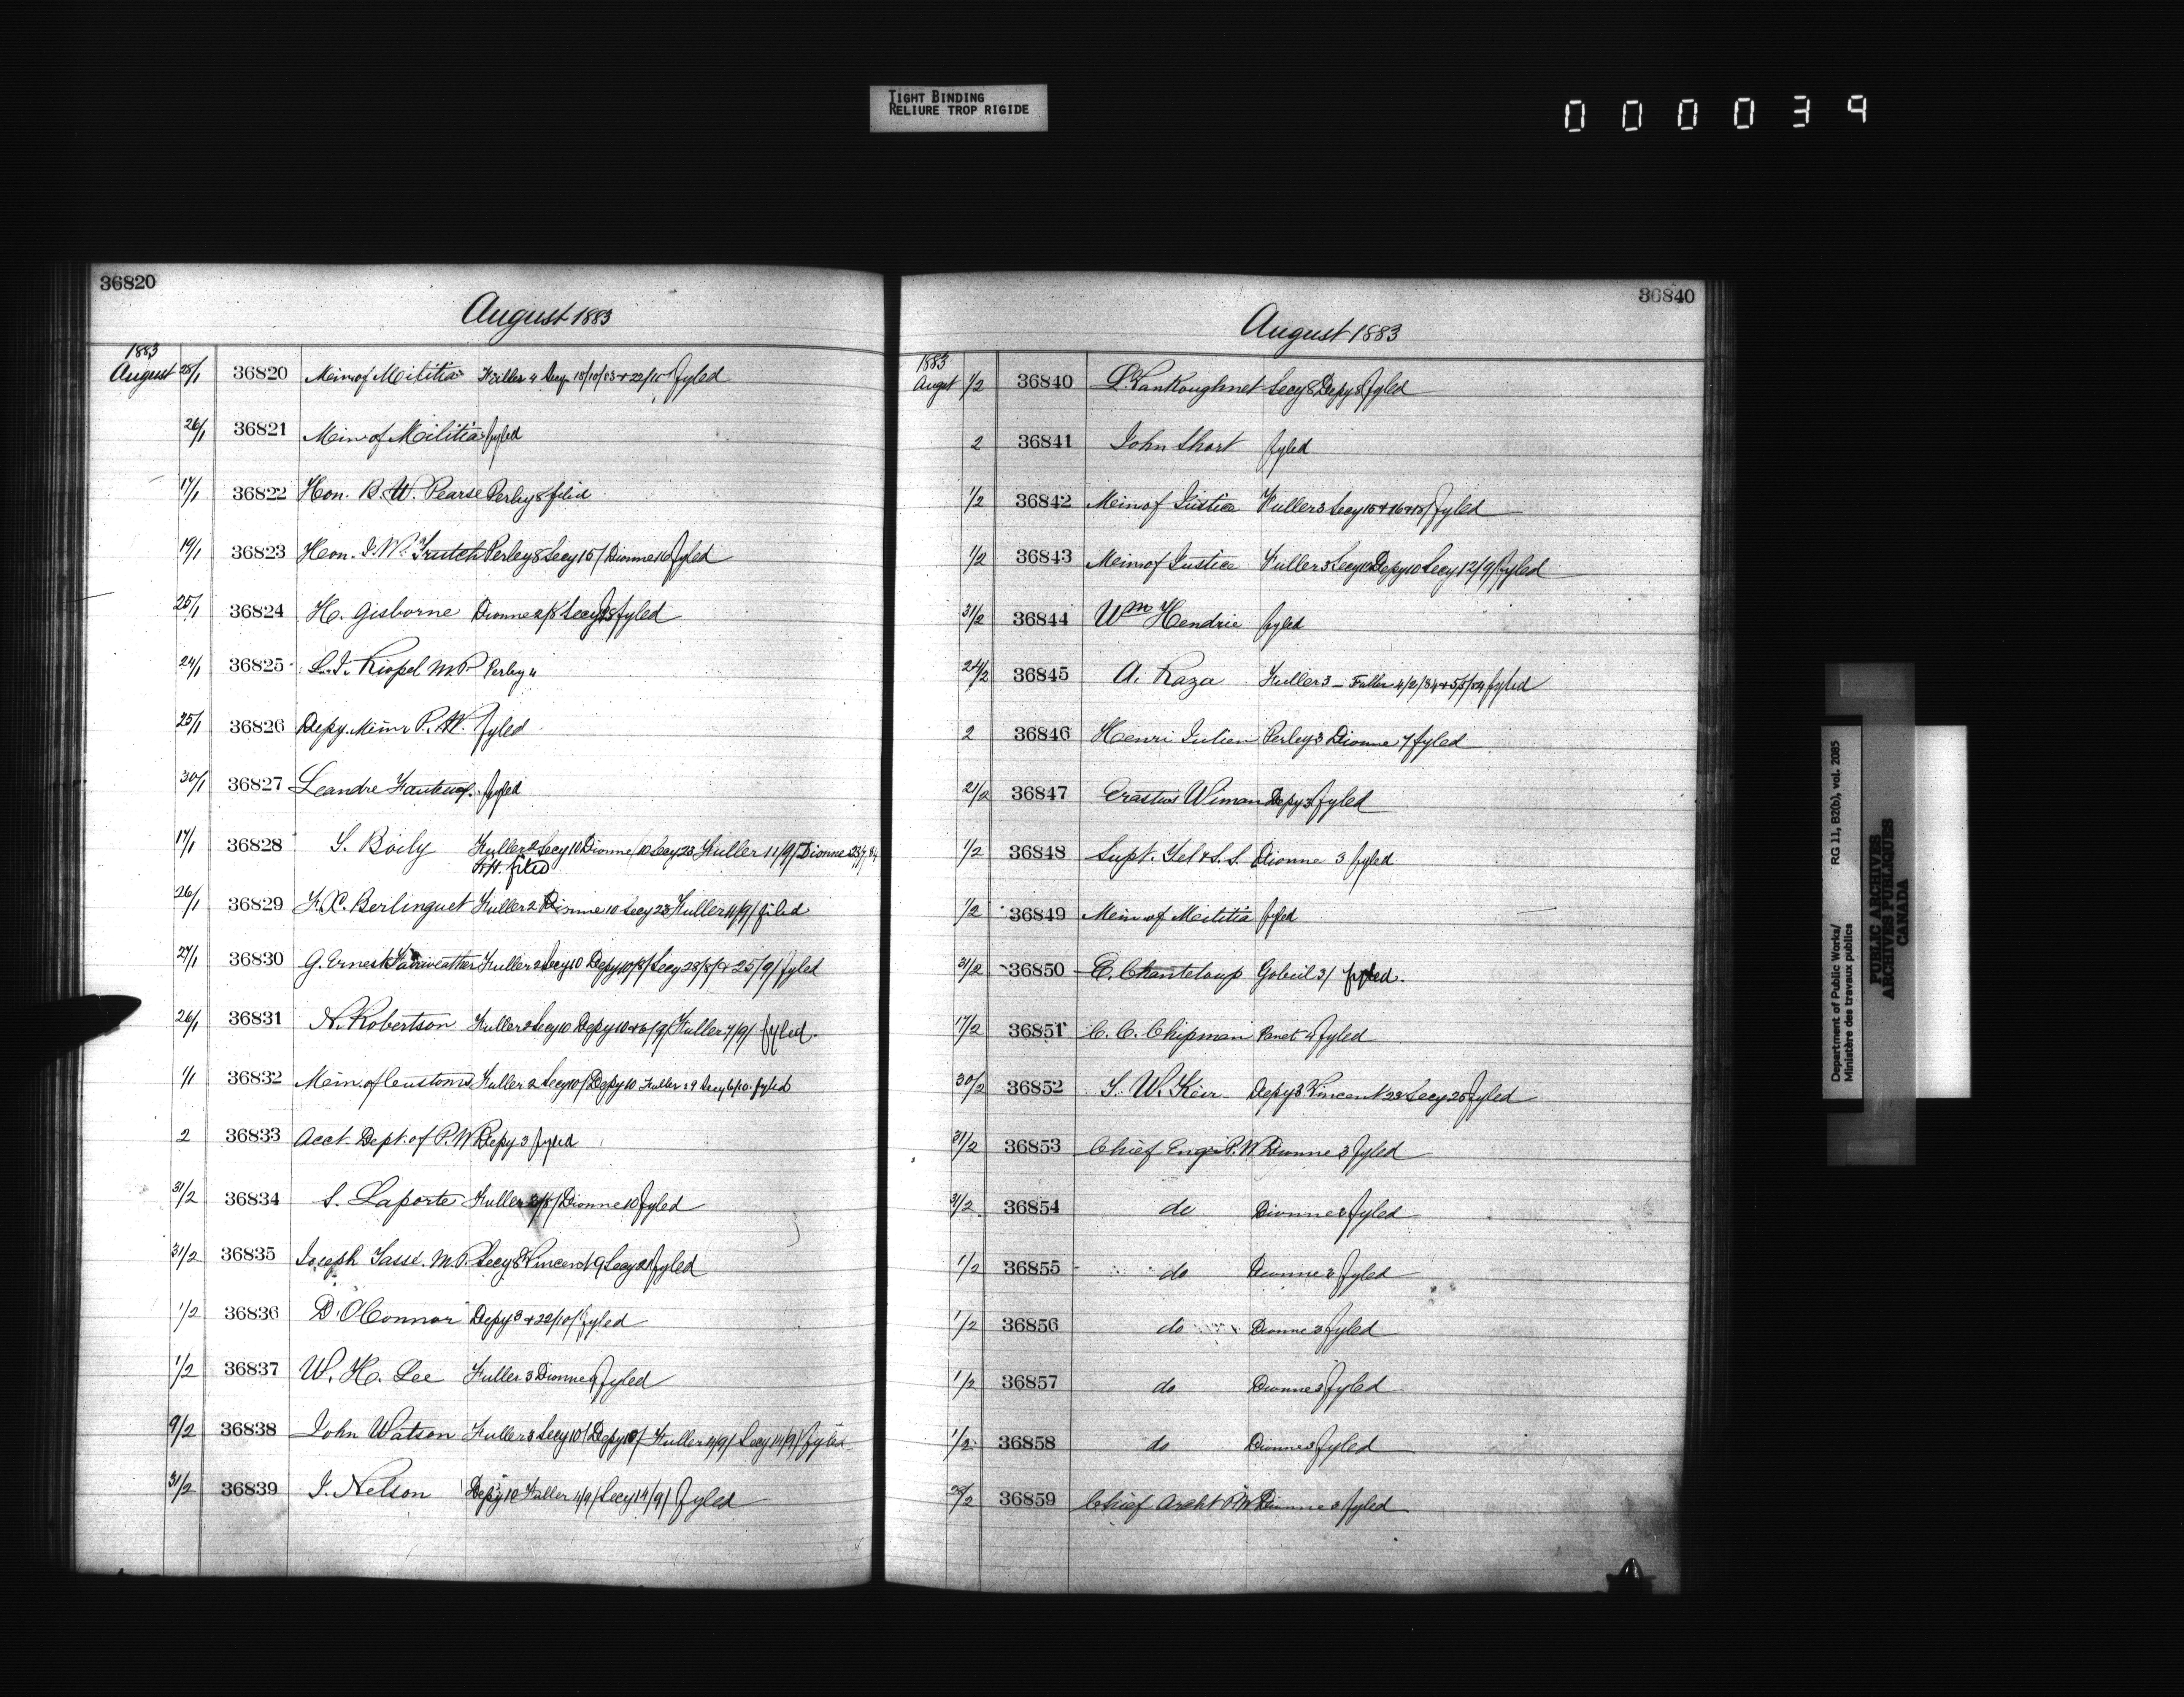 TIGHT BINDING
RELIURE TROP RIGIDE
000039
36820
August 1883
1883
August 28/1 36820 Min of Militia Fuller 4 Secy 15/10/83 + 22/10 fyled
26/1 36821 Min of Militia fyled
17/1 36822 Hon. B. W. Pearse Perley 8 filed
19/1 36823 Hon. J. W. Trutch Perley 8 Secy 15/ Dionne 16 fyled
25/1 36824 H. Gisborne Dionne 2/8 Secy fyled
24/1 36825 L. J. Riopel M.P. Perley 4
25/1 36826 Depy. Minr P. W. fyled
30/1 36827 Leandre fyled
17/1 36828 S. Boily Fuller 2 Secy 10 Dionne 10 Secy 23 Fuller 11/9/ Dionne 23/7/84
filed
26/1 36829 F. X. Berlinguet Fuller 2 Dionne 10 Secy 23 Fuller 11/9/ filed
27/1 36830 G. Ernest Fairweather Fuller 2 Secy 10 Depy 10/8/ Secy 28/8/ + 25/9/ fyled
26/1 36831 N. Robertson Fuller 2 Secy 10 Depy 10 + 6/9/ Fuller 7/9/ fyled.
1/1 36832 Min. of Customs Fuller 2 Secy 10/ Depy 10 Fuller 29 Secy 6/10. fyled
2 36833 Acct. Dept. of P. W. Depy 3 fyled
31/2 36834 S. Laporte Fuller 3/8/ Dionne 10 fyled
31/2 36835 Joseph Tassé. M.P. Secy 8 Vincent 9 Secy 21 fyled
1/2 36836 D. O'Connor Depy 3 + 22/10/ fyled
1/2 36837 W. H. Lee Fuller 3 Dionne 9 fyled
9/2 36838 John Watson Fuller 3 Secy 10/ Depy 10/ Fuller 11/9/ Secy 14/9/ fyled
31/2 36839 J. Nelson Depy 10 Fuller 11/9/ Secy 14/9/ fyled
36840
August 1883
1883
August 1/2 36840 L. VanKoughnet Secy 8 Depy 8 fyled
2 36841 John Short fyled
1/2 36842 Min of Justice Fuller 3 Secy 15 + 16 + 18/ fyled
1/2 36843 Min of Justice Fuller 3 Secy 10 Depy 10 Secy 12/9/ fyled
31/2 36844 Wm Hendrie fyled
24/2 36845 A. Raza Fuller 3 - Fuller 4/2/84 + 5/5/84 fyled
2 36846 Henri Julien Perley 3 Dionne 7 fyled
21/2 36847 Erastus Wiman Depy 3 fyled
1/2 36848 Supt. Tel & S. S. Dionne 3 fyled
1/2 36849 Min of Militia fyled
31/2 36850 E. Chanteloup Gobeil 3/ fyled.
17/2 36851 C. C. Chipman Panet 4 fyled
30/2 36852 S. W. Keir Depy 3 Vincent 23 Secy 25 fyled
31/2 36853 Chief Engr P. W. Dionne 3 fyled
31/2 36854 do Dionne 3 fyled
1/2 36855 do Dionne 3 fyled
1/2 36856 do Dionne 3 fyled
1/2 36857 do Dionne 3 fyled
1/2 36858 do Dionne 3 fyled
36859 Chief Archt P.W. Dionne 3 fyled
Department of Public Works/ RG 11, B2(b), vol. 2085
Ministère des travaux publics
PUBLIC ARCHIVES
ARCHIVES PUBLIQUES
CANADA